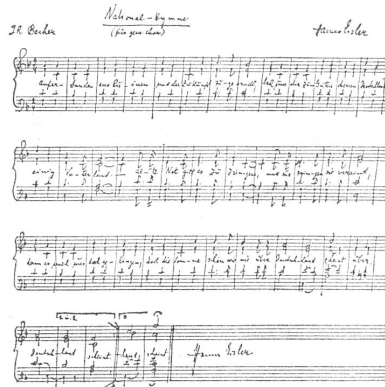 National-Hymne
J.R. Becher (für gem. Chor) Hanns Eisler
Aufer- standen aus Ru- inen und der Zukunft zu- gewandt, laß uns dir zum Guten dienen, Deutschland
einig Va- terland. Not gilt es zu zwingen, und wir zwingen sie vereint,
denn es muß uns doch gelingen, daß die Son- ne schön wie nie über Deutschland scheint über
Deutsch- land scheint. scheint Hanns Eisler